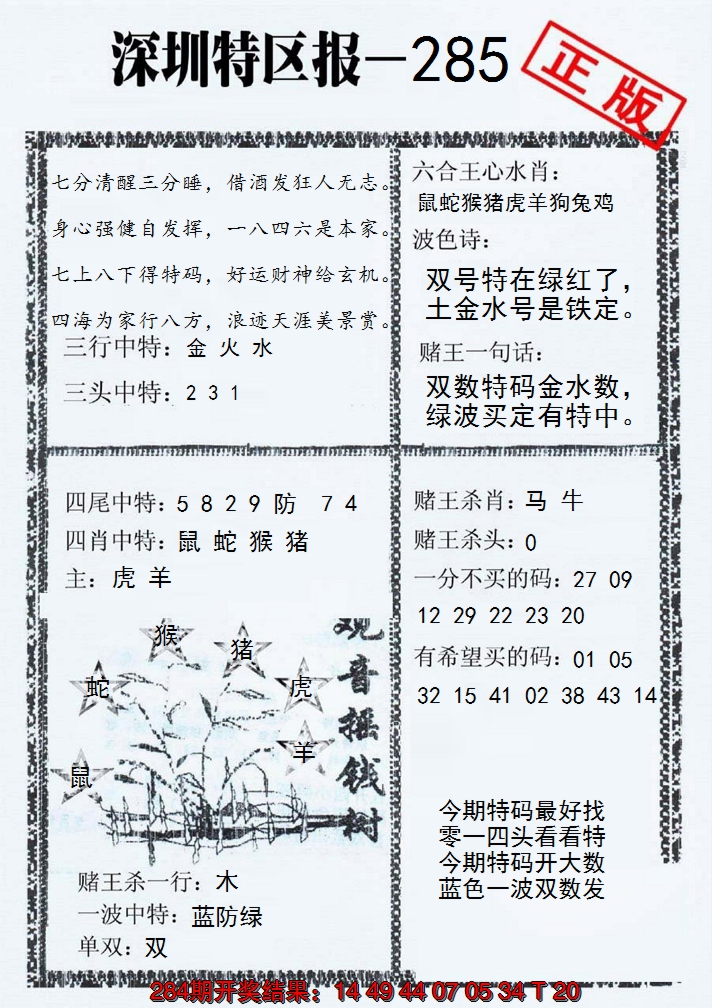 深圳特区报—285
正版
七分清醒三分睡，借酒发狂人无志。
身心强健自发挥，一八四六是本家。
七上八下得特码，好运财神给玄机。
四海为家行八方，浪迹天涯美景赏。
三行中特：金 火 水
三头中特：2 3 1
六合王心水肖：
鼠蛇猴猪虎羊狗兔鸡
波色诗：
双号特在绿红了，
土金水号是铁定。
赌王一句话：
双数特码金水数，
绿波买定有特中。
四尾中特：5 8 2 9 防 7 4
四肖中特：鼠 蛇 猴 猪
主：虎 羊
猴
猪
蛇
虎
羊
鼠
观音摇钱树
赌王杀一行：木
一波中特：蓝防绿
单双：双
赌王杀肖：马 牛
赌王杀头：0
一分不买的码：27 09
12 29 22 23 20
有希望买的码：01 05
32 15 41 02 38 43 14
今期特码最好找
零一四头看看特
今期特码开大数
蓝色一波双数发
284期开奖结果：14 49 44 07 05 34 T 20